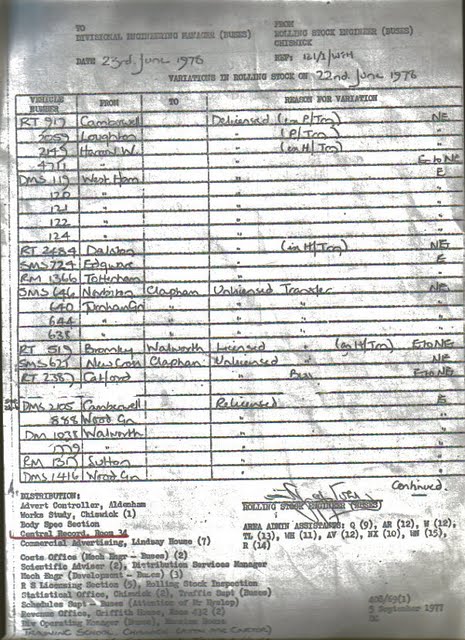 TO
DIVISIONAL ENGINEERING MANAGER (BUSES)
FROM
ROLLING STOCK ENGINEER (BUSES)
CHISWICK
DATE 23rd June 1976
REF: 121/1/WSH
VARIATIONS IN ROLLING STOCK ON 22nd June 1976
VEHICLE NUMBER FROM TO REASON FOR VARIATION
RT 917 Camberwell Delicensed (in P/Trn) NE
3059 Loughton " (P/Trn) "
2143 Harrow W. " (in H/Trn) "
4711 " " E to NE
DMS 119 West Ham " E
120 " " "
121 " " "
122 " " "
124 " " "
RT 2484 Dalston " (in H/Trn) NE
SMS 724 Edgware " E
RM 1366 Tottenham "
SMS 646 Norbiton Clapham Unlicensed Transfer NE
640 TurnhamGn " " " "
644 " " " " "
638 " " " " "
RT 519 Bromley Walworth Licensed " (in H/Trn) E to NE
SMS 621 New Cross Clapham Unlicensed " NE
RT 2387 Catford E to NE
DMS 2105 Camberwell Relicensed E
888 Wood Gn " "
DM 1038 Walworth " "
1779 " " "
RM 1317 Sutton " "
DMS 1416 Wood Gn " "
Continued.
DISTRIBUTION:
Advert Controller, Aldenham
Works Study, Chiswick (1)
Body Spec Section
Central Record, Room 14
Commercial Advertising, Lindsay House (7)
Costs Office (Mech Engr - Buses) (2)
Scientific Adviser (2), Distribution Services Manager
Mech Engr (Development - Buses) (3)
R S Licensing Section (5), Rolling Stock Inspection
Statistical Office, Chiswick (2), Traffic Dept (Buses)
Schedules Supt - Buses (Attention of Mr Hyslop)
Revenue Office, Griffith House, Room 412 (2)
Operating Manager (Buses), Mansion House
TRAINING SCHOOL CHISWICK
ROLLING STOCK ENGINEER (BUSES)
AREA ADMIN ASSISTANTS: Q (9), AR (12), W (12),
TL (13), WH (11), AV (12), NX (10), UN (15),
R (14)
408/69(1)
5 September 1977